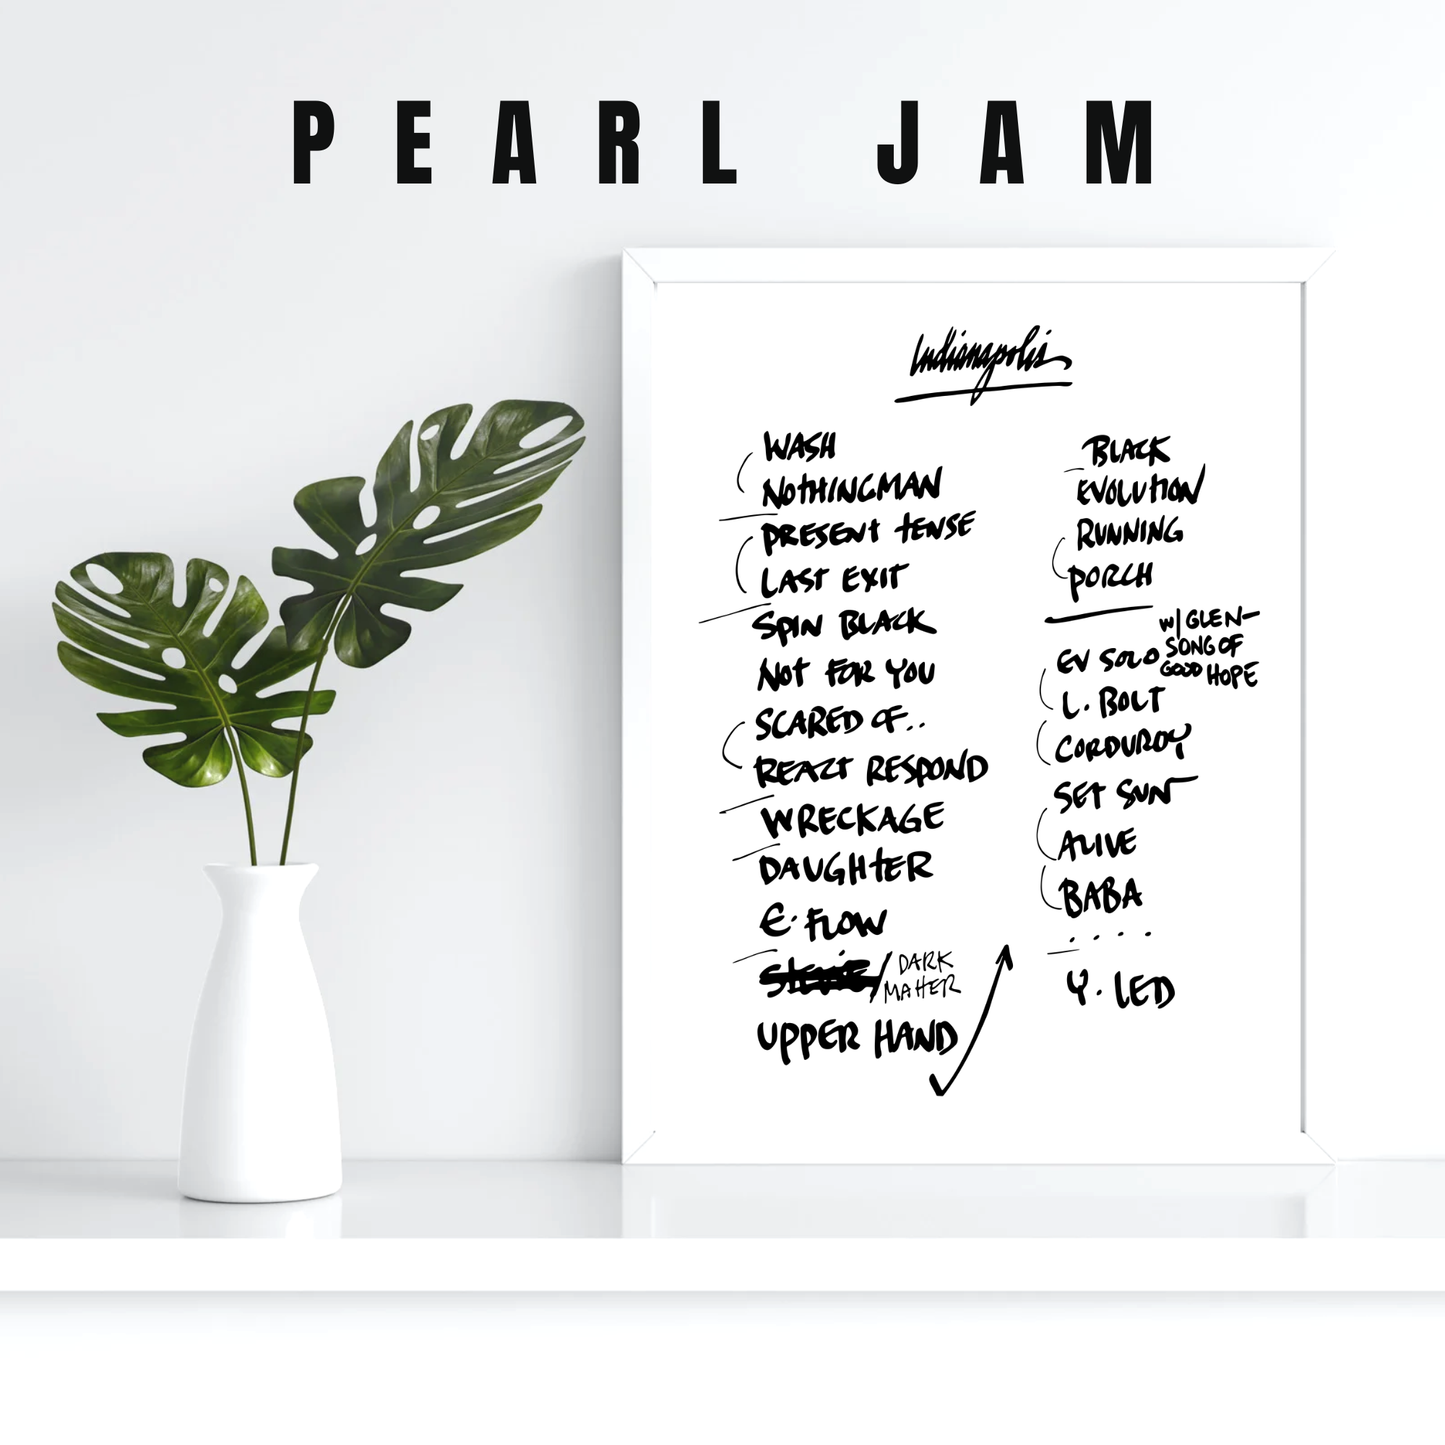 PEARL JAM
Indianapolis
WASH
NOTHINGMAN
PRESENT TENSE
LAST EXIT
SPIN BLACK
NOT FOR YOU
SCARED OF..
REACT RESPOND
WRECKAGE
DAUGHTER
E. FLOW
STEVIE/DARK
MATTER
UPPER HAND
BLACK
EVOLUTION
RUNNING
PORCH
W/ GLEN-
SONG OF
GOOD HOPE
EV SOLO
L. BOLT
CORDUROY
SET SUN
ALIVE
BABA
. . . .
Y. LED